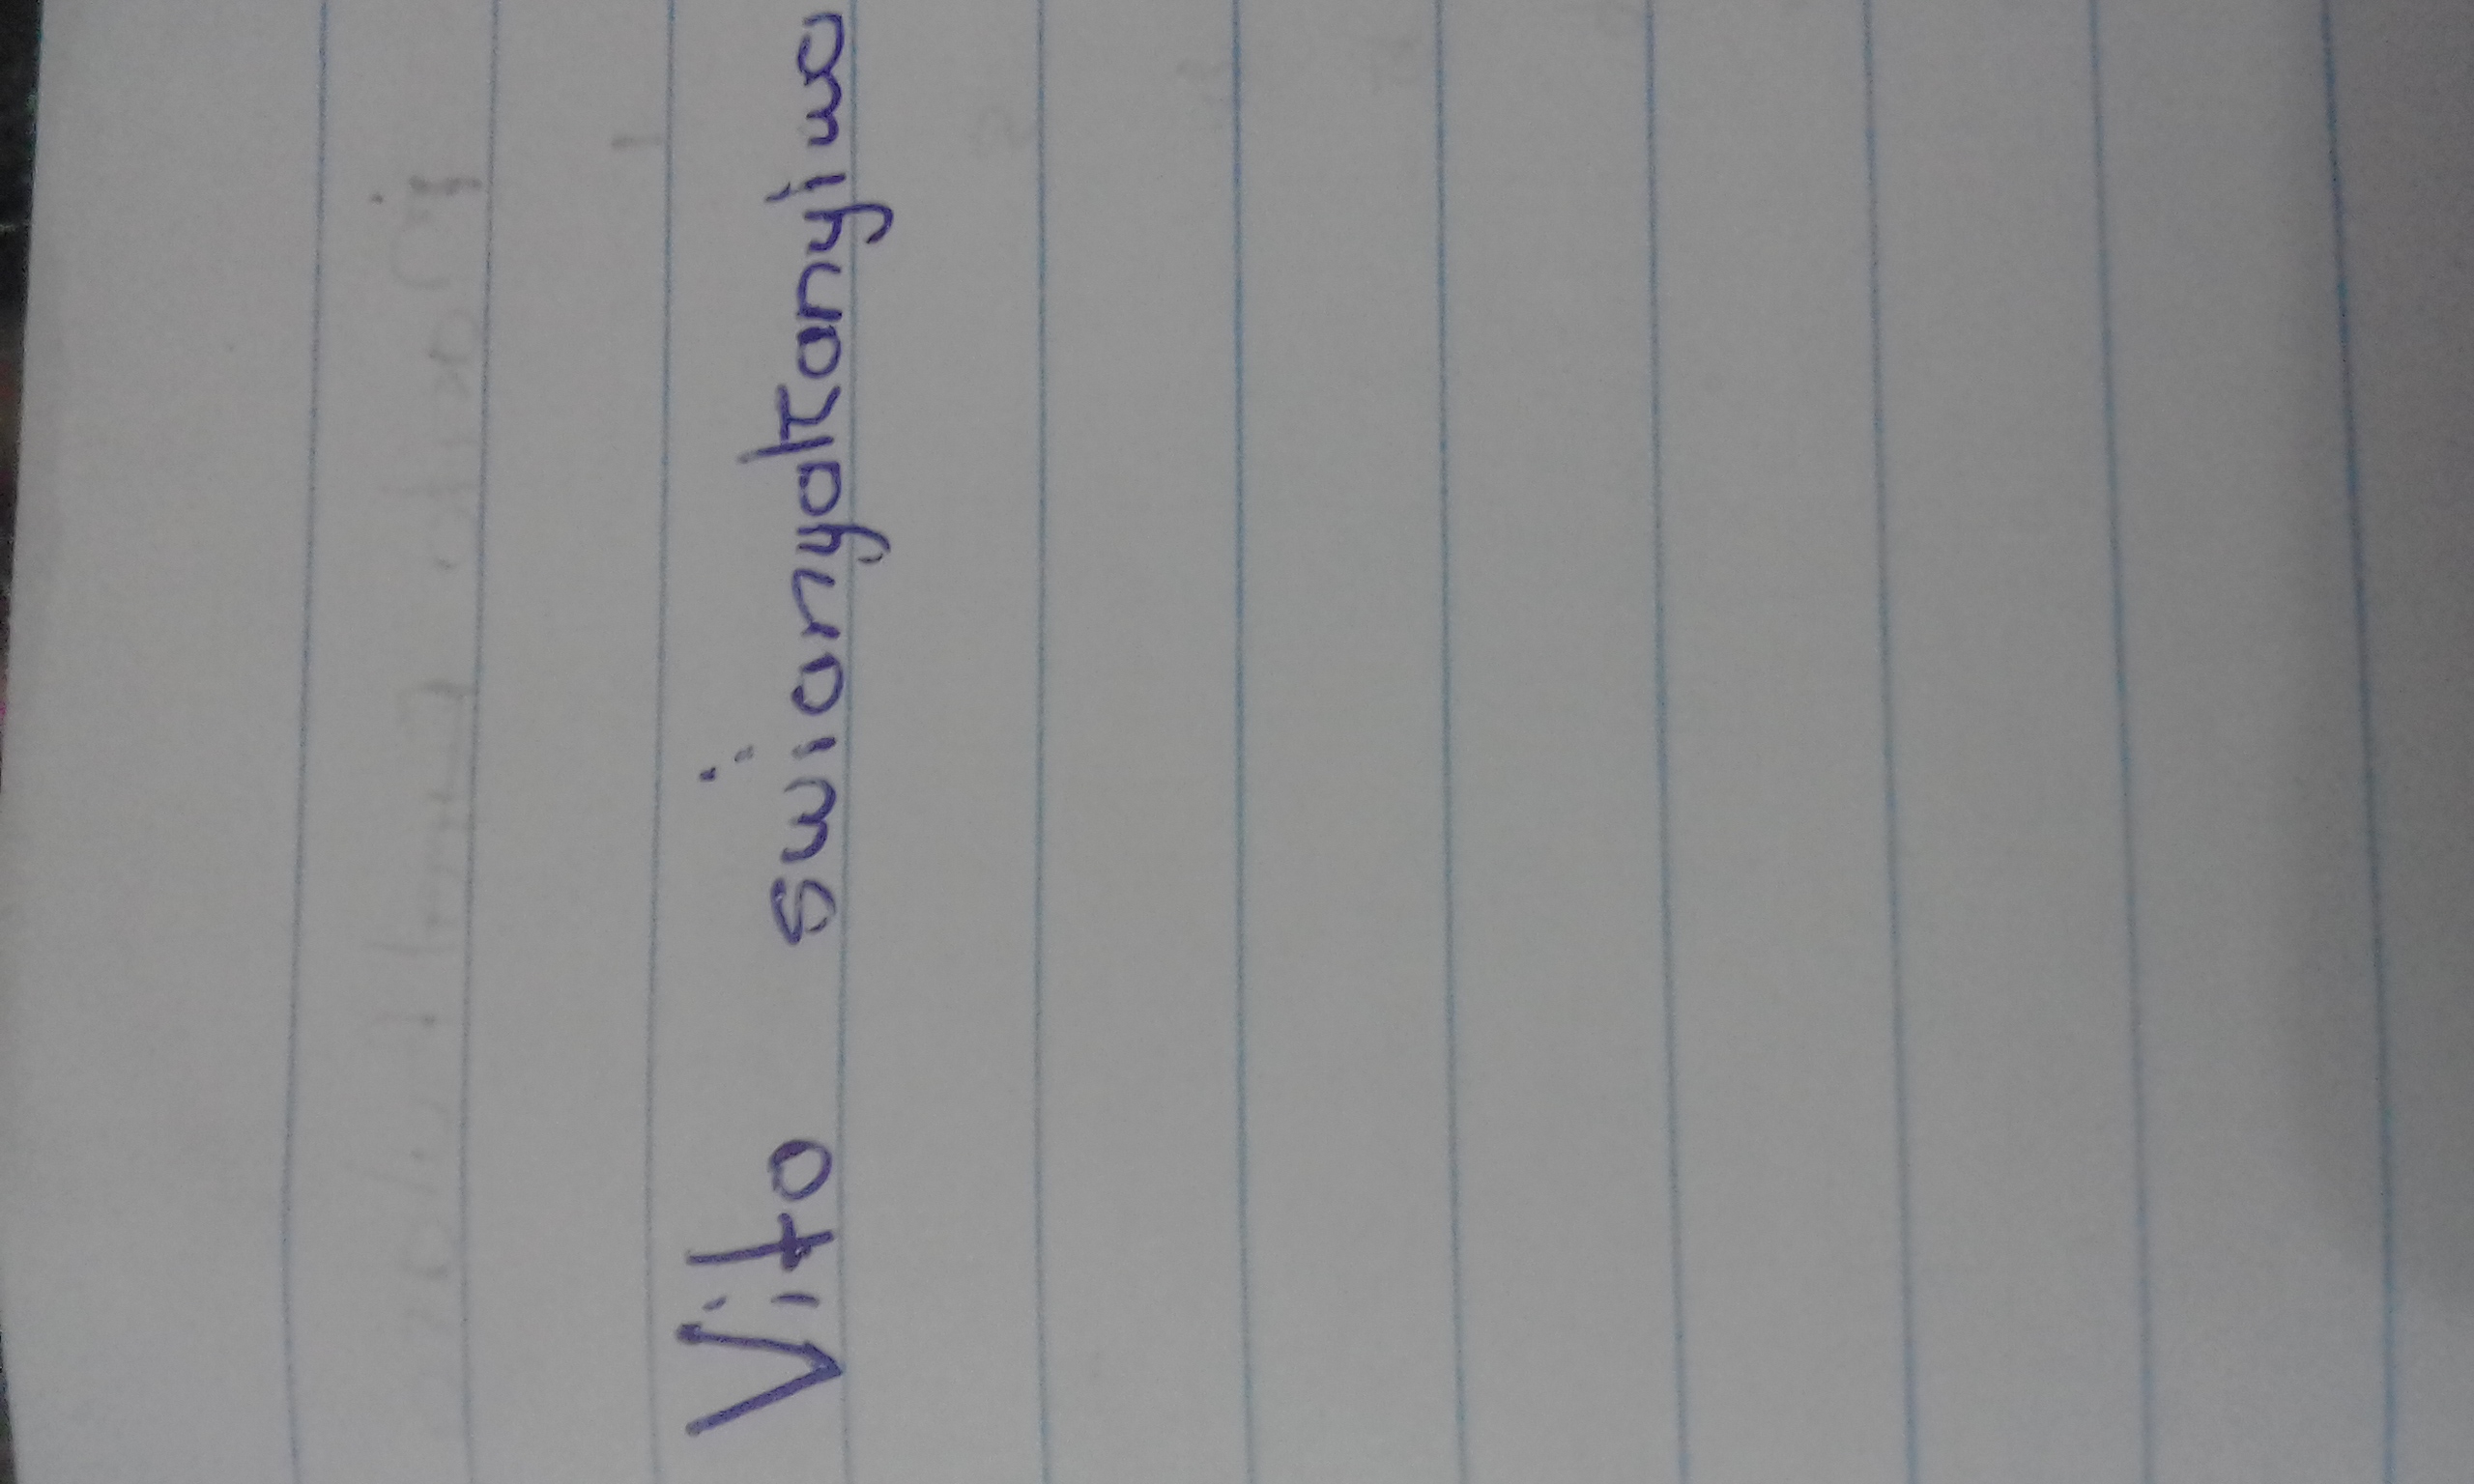 Vito swianyakanyiwa